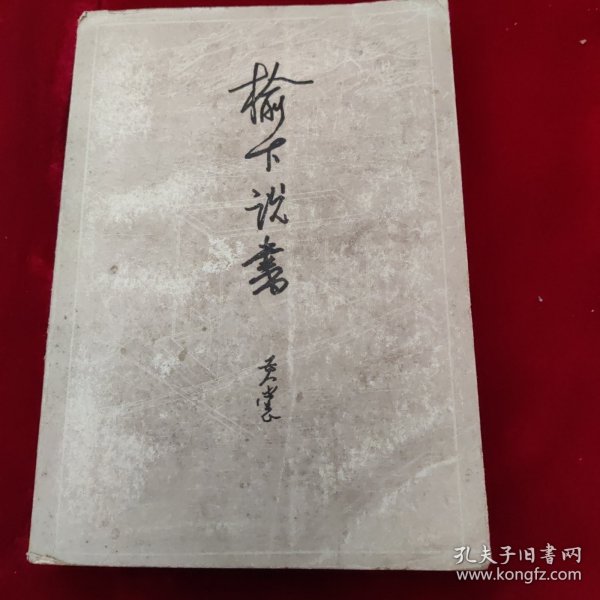 榆下说书
黄裳
孔夫子旧書网
www.kongfz.com